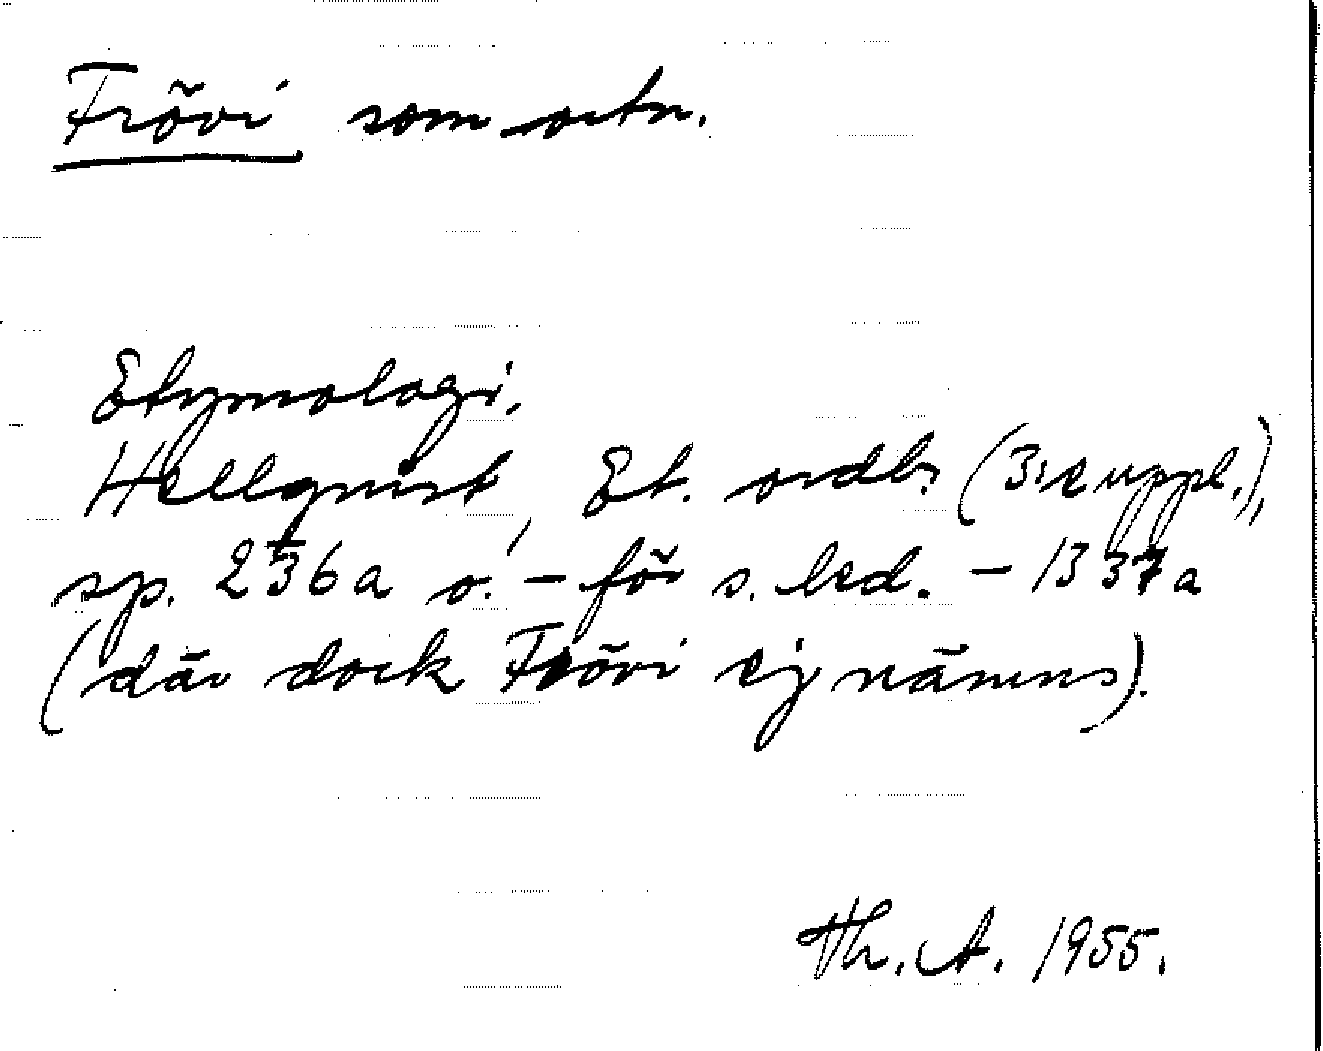 Frövi som ortn.
Etymologi.
Hellquist, Et. ordb. (3:e uppl.),
sp. 236a o. – för s. led. – 1337a
(där dock Frövi ej nämns).
Th. A. 1955.